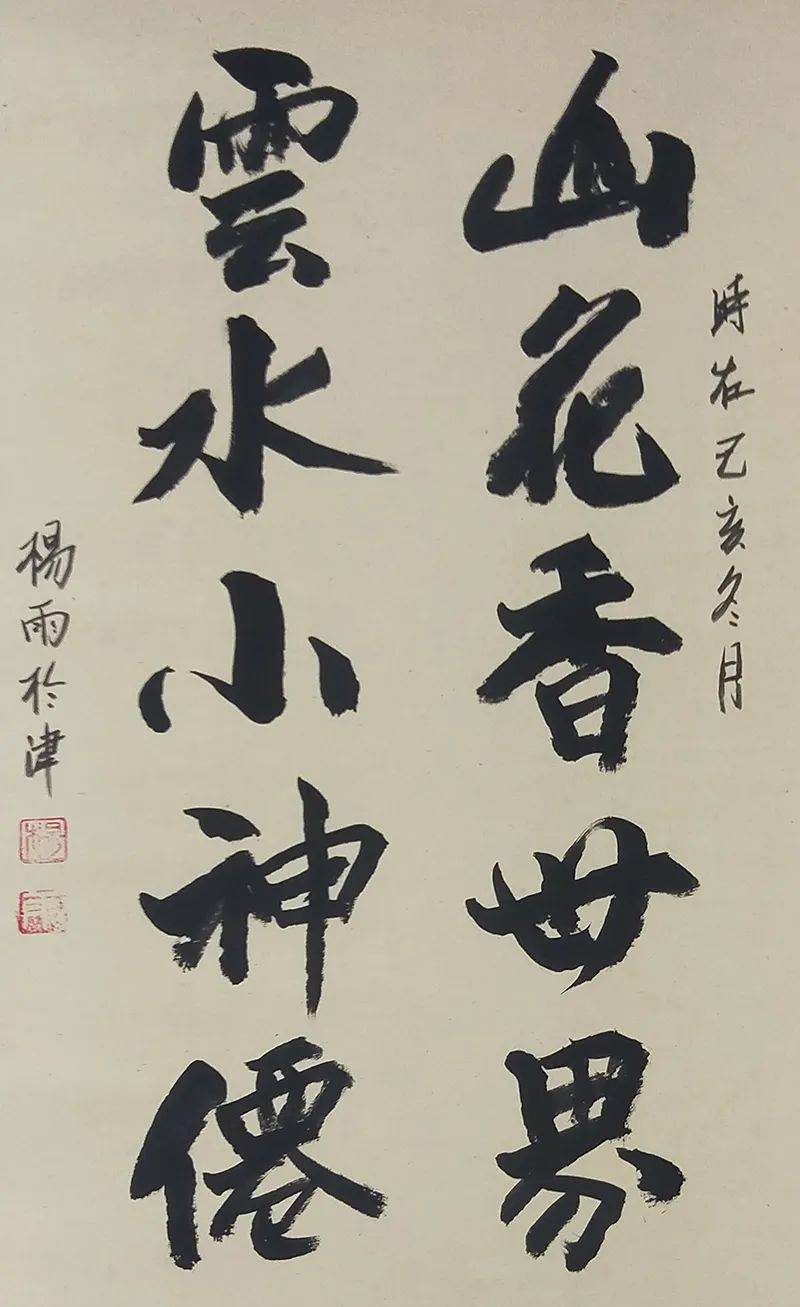 時在己亥冬月
幽花香世界
雲水小神僊
楊雨於津
楊